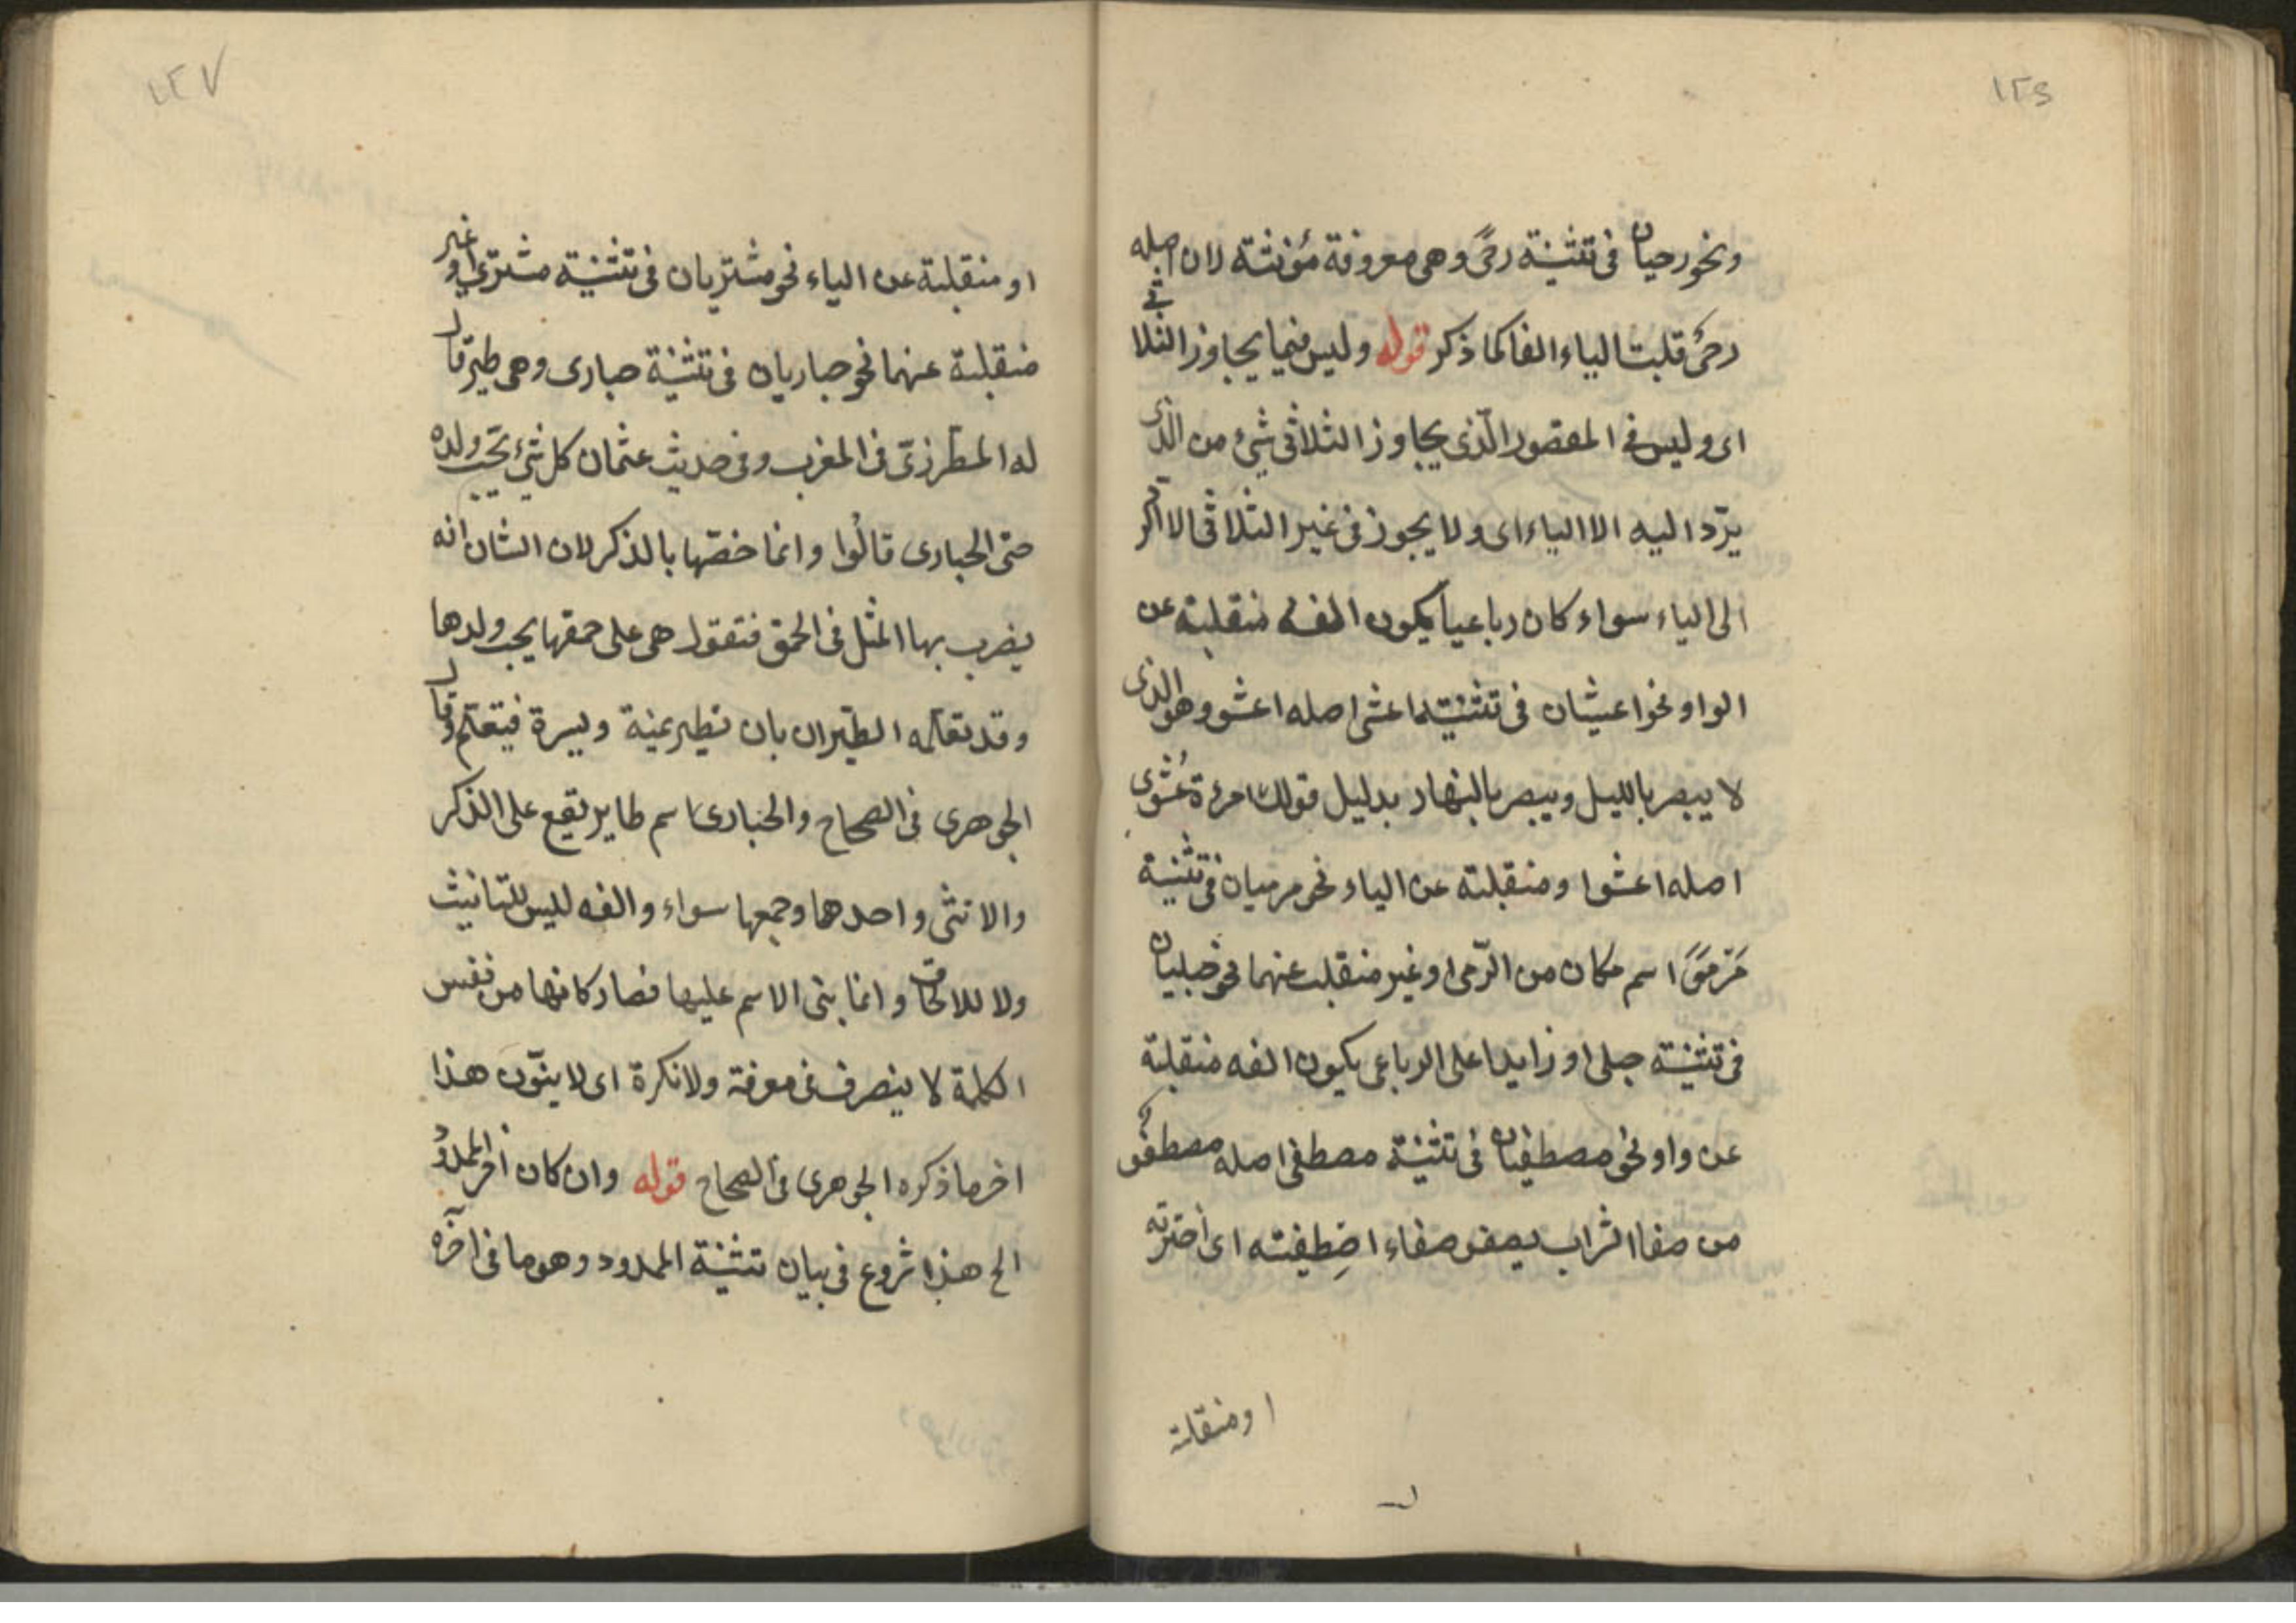 ١٢٦
ونحو رحيان في تثنية رحًى وهي معروفة مؤنثة لان اصله
رحىٌ قلبت الياء الفا كما ذكر قوله وليس فيما يجاوز الثلاثى
اى وليس في المقصور الّذى يجاوز الثلاثى شئ من الّذى
يردّ اليه الا الياء اى ولا يجوز فى غير الثلاثى الا الردّ
الى الياء سواء كان رباعيا يكون الفه منقلبة عن
الواو نحو اعشيان فى تثنية اعشى اصله اعشو وهو الذى
لا يبصر بالليل ويبصر بالنهار بدليل قولك امرءة عُشْوى
اصله اعشوا ومنقلبة عن الياء نحو مرميان فى تثنية
مَرْمىً اسم مكان من الرّمى او غير منقلبة عنهما نحو حبليان
فى تثنية حبلى او زايدا على الرباعى يكون الفه منقلبة
عن واو نحو مصطفيان فى تثنية مصطفى اصله مصطفو
من صفا الشراب يصفو صفاء اصْطِفيته اى اخترته
او منقلبة
١٢٧
او منقلبة عن الياء نحو مشتريان فى تثنية مشترى او غير
منقلبة عنهما نحو حباريان فى تثنية حبارى وهى طير قال
له المطرزى فى المغرب وفى حديث عثمان كل شئ يحب ولده
حتى الحبارى قالُوا وانما خصّها بالذكر لان الشان انه
يضرب بها المثل فى الحمق فتقول هى على حمقها يحب ولدها
وقد تعلّمه الطيران بان تطير يمنة ويسرة فيتعلّم وقال
الجوهرى فى الصحاح والحبارى اسم طاير يقع على الذكر
والانثى واحدها وجمعها سواء والفه ليس للتانيث
ولا للالحاق وانما بنى الاسم عليها فصار كانها من نفس
الكلمة لا ينصرف فى معرفة ولا نكرة اى لا ينوّن هذا
اخر ما ذكره الجوهرى فى الصحاح قوله وان كان اخر الممدود
الخ هذا شروع فى بيان تثنية الممدود وهو ما فى آخره